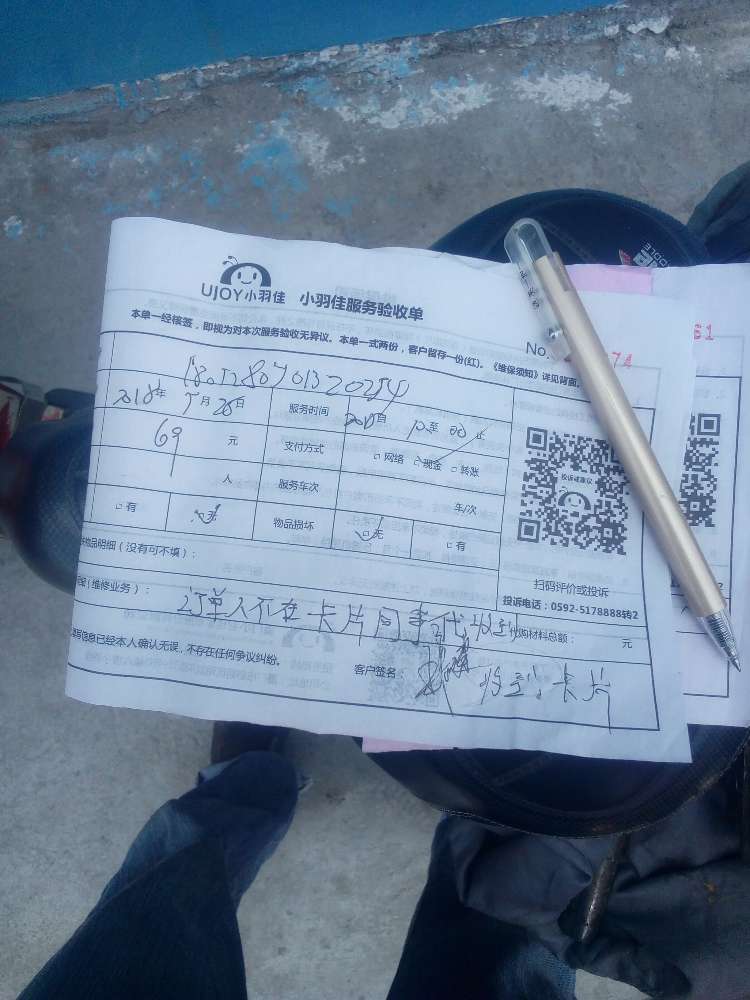 UJOY小羽佳 小羽佳服务验收单
本单一经核签，即视为对本次服务验收无异议。本单一式两份，客户留存一份(红)。《维保须知》详见背面。
No. 74
61
2018年 5月26日 服务时间 自 至 止
69 元 支付方式 网络 现金 转账
人 服务车次 车/次
有 无 物品损坏 无 有
投诉或建议
扫码评价或投诉
投诉电话：0592-5178888转2
物品明细（没有可不填）：
（维修业务）： 订单人不在 卡片同事代收到 购材料总额： 元
信息已经本人确认无误，不存在任何争议纠纷。 客户签名： 收到卡片